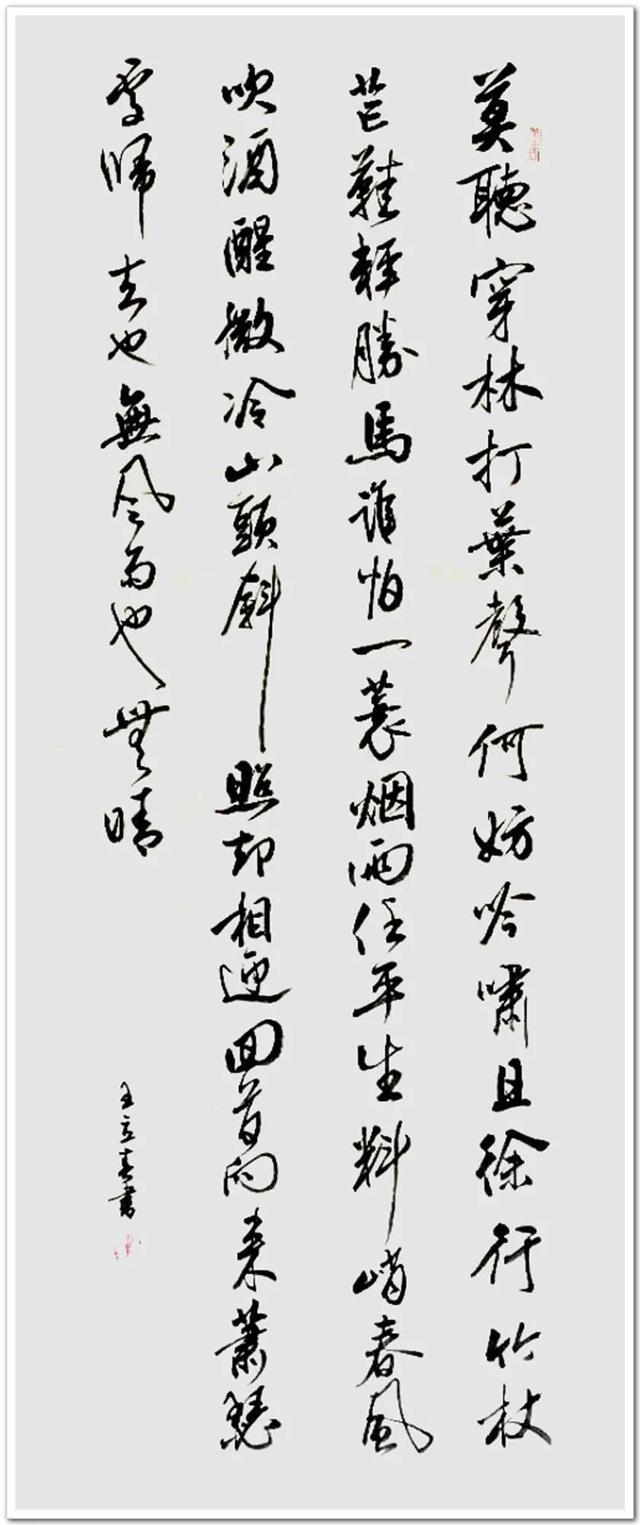 莫聽穿林打葉聲何妨吟嘯且徐行竹杖
芒鞋輕勝馬誰怕一蓑烟雨任平生料峭春風
吹酒醒微冷山頭斜照却相迎回首向来蕭瑟
處歸去也無風雨也無晴
王立書